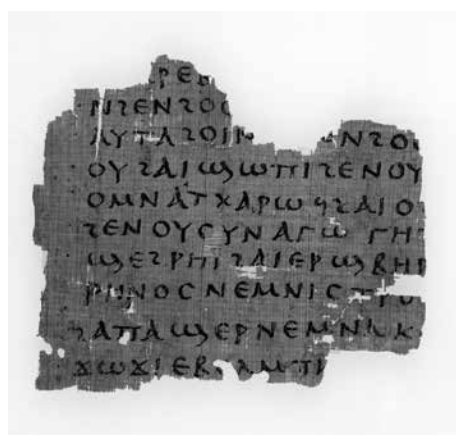 ⲣⲉ
ⲛϩⲉⲛϩⲟⲥ
ⲁⲩⲧⲁϩⲟⲓ ⲛϩⲟ
ⲟⲩϩⲁⲓϣⲱⲡⲓϩⲉⲛⲟⲩ
ⲟⲙⲛⲁⲧⲭⲁⲣⲱϥϩⲁⲓⲟ
ϩⲉⲛⲟⲩⲥⲩⲛⲁⲅⲱⲅⲏ
ϣⲉϩⲣⲏⲓϩⲁⲓⲉⲣϣⲃⲏⲣ
ⲣⲏⲛⲟⲥⲛⲉⲙⲛⲓⲥⲧⲣⲟⲩ
ϥⲁⲡⲁϣⲉⲣⲛⲉⲙⲛⲁⲕ
ϫⲱϫⲓⲉⲃ